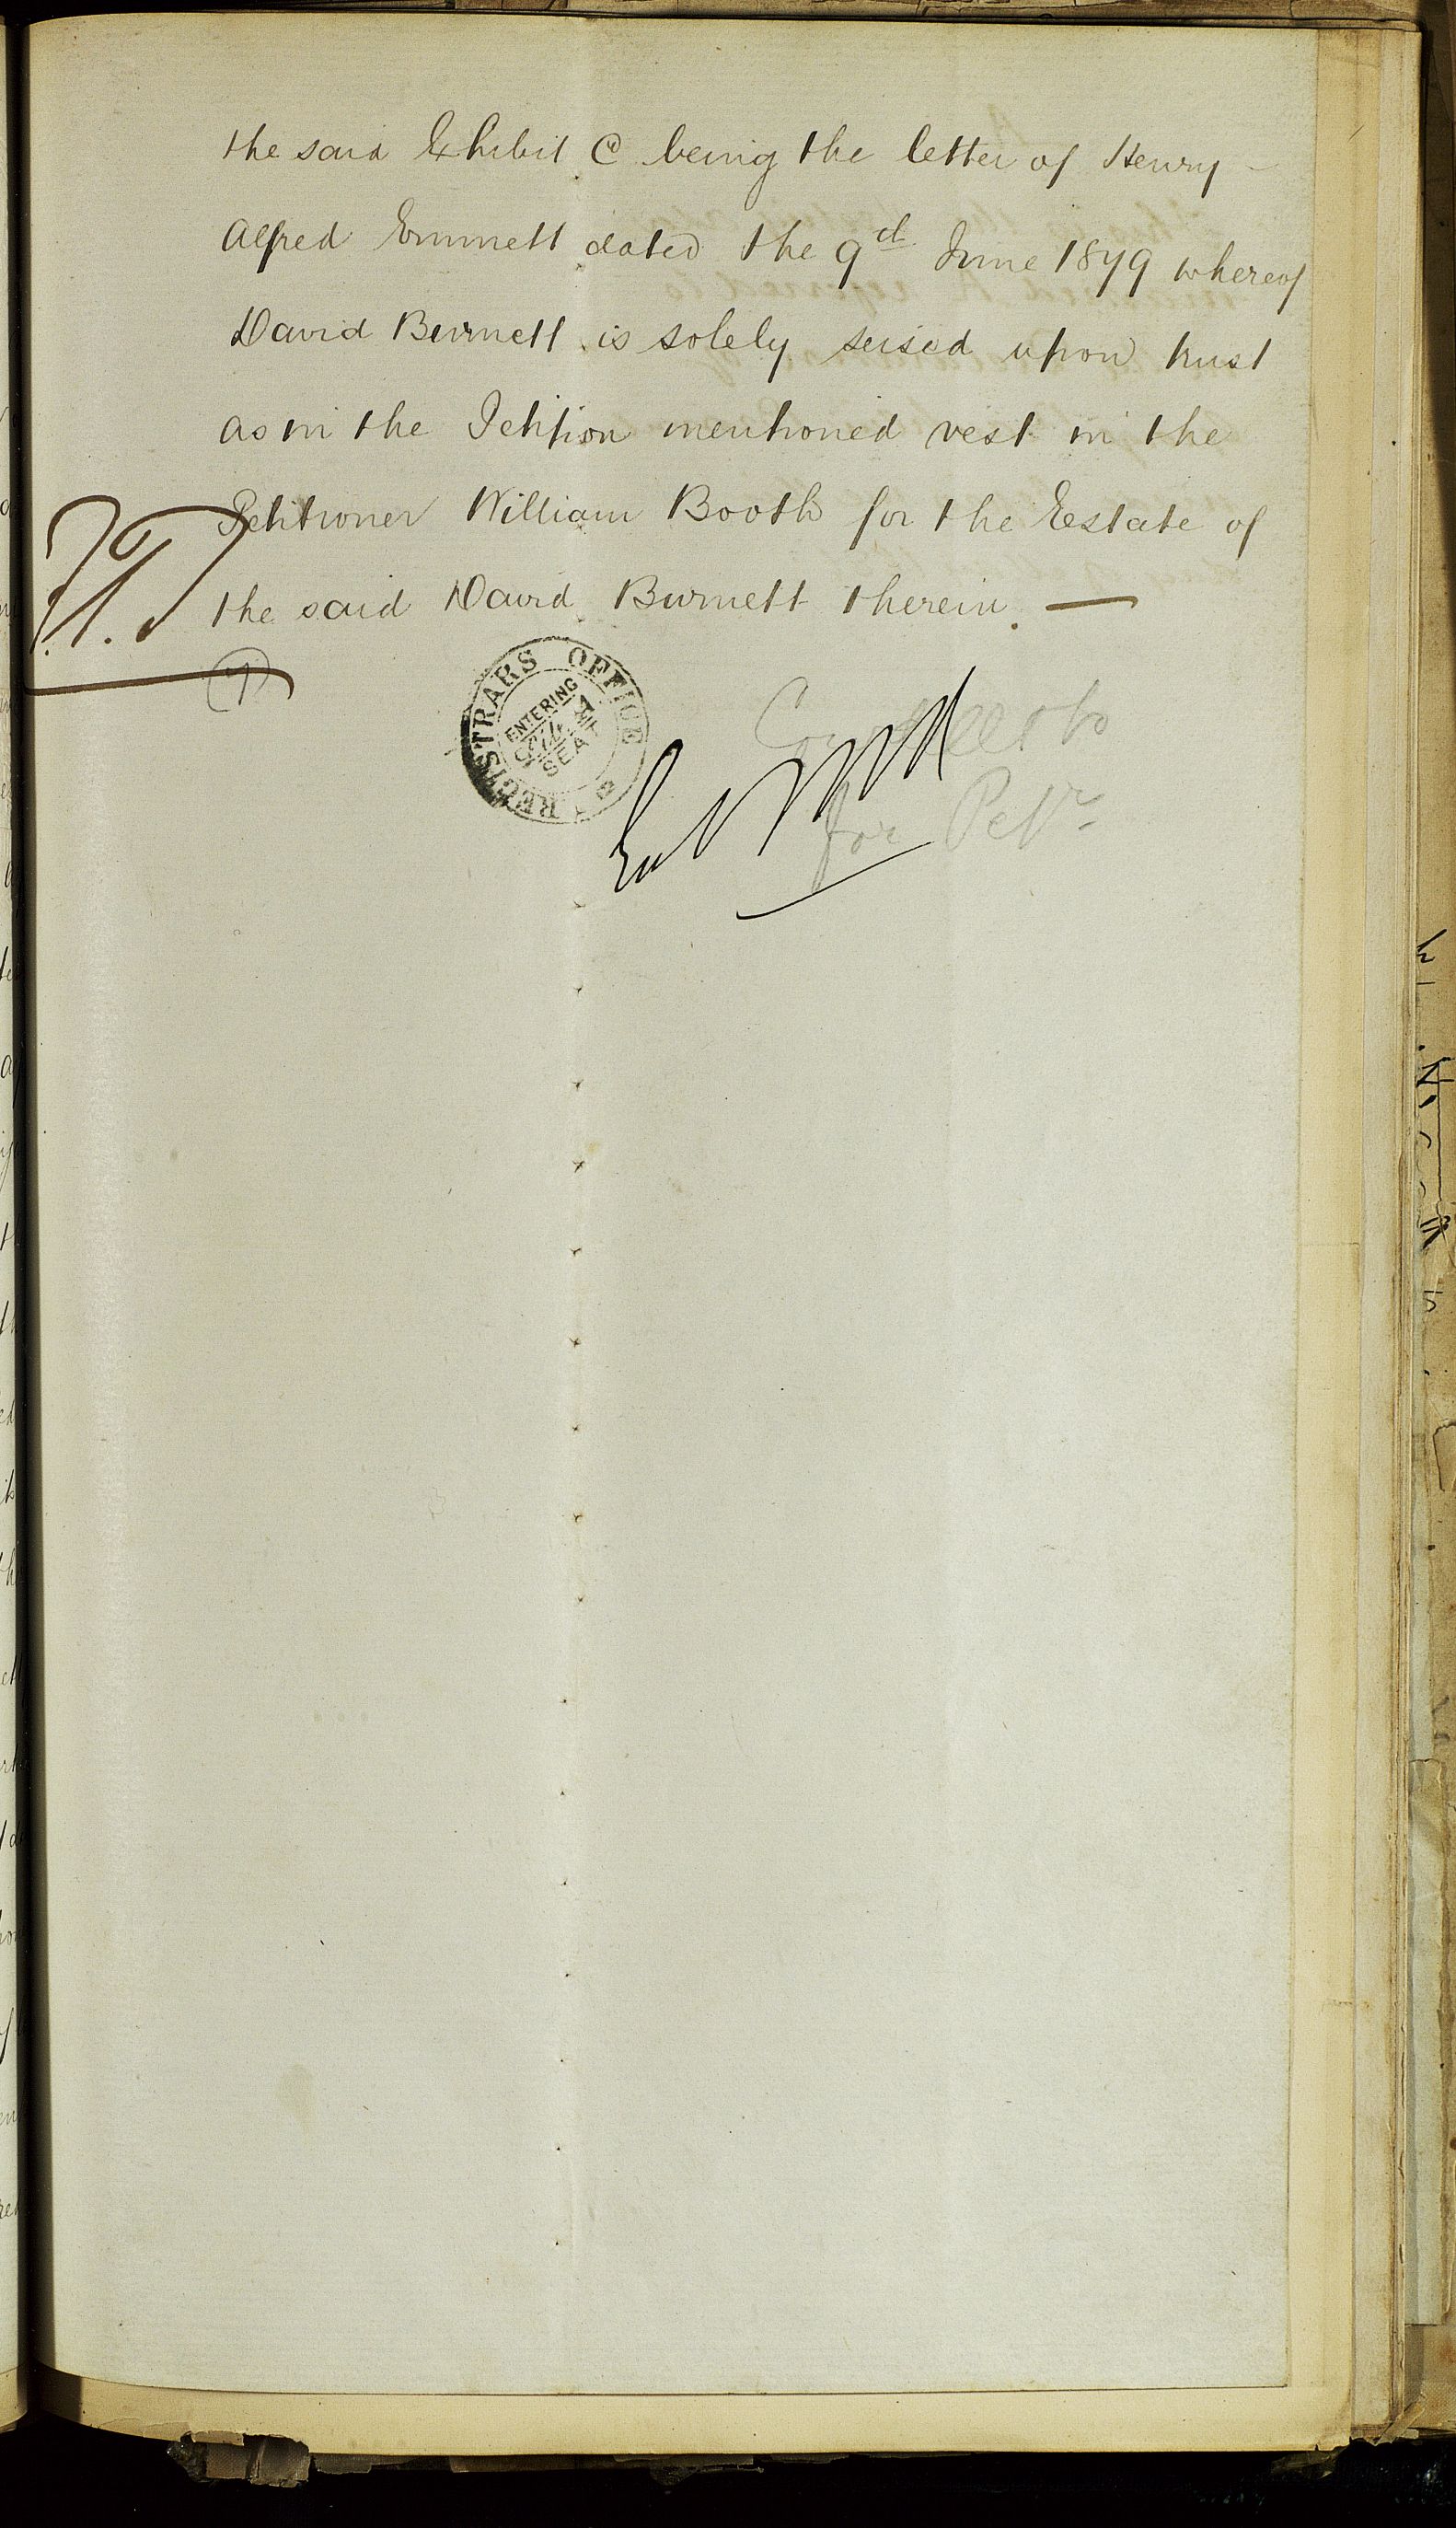 the said Exhibit C being the letter of Henry -
Alfred Emmett dated the 9th June 1879 whereof
David Burnett is solely seised upon trust
as in the Petition mentioned vest in the
Petitioner William Booth for the Estate of
the said David Burnett therein. —
(7)
REGISTRARS OFFICE
ENTERING
SEAT
for Petr